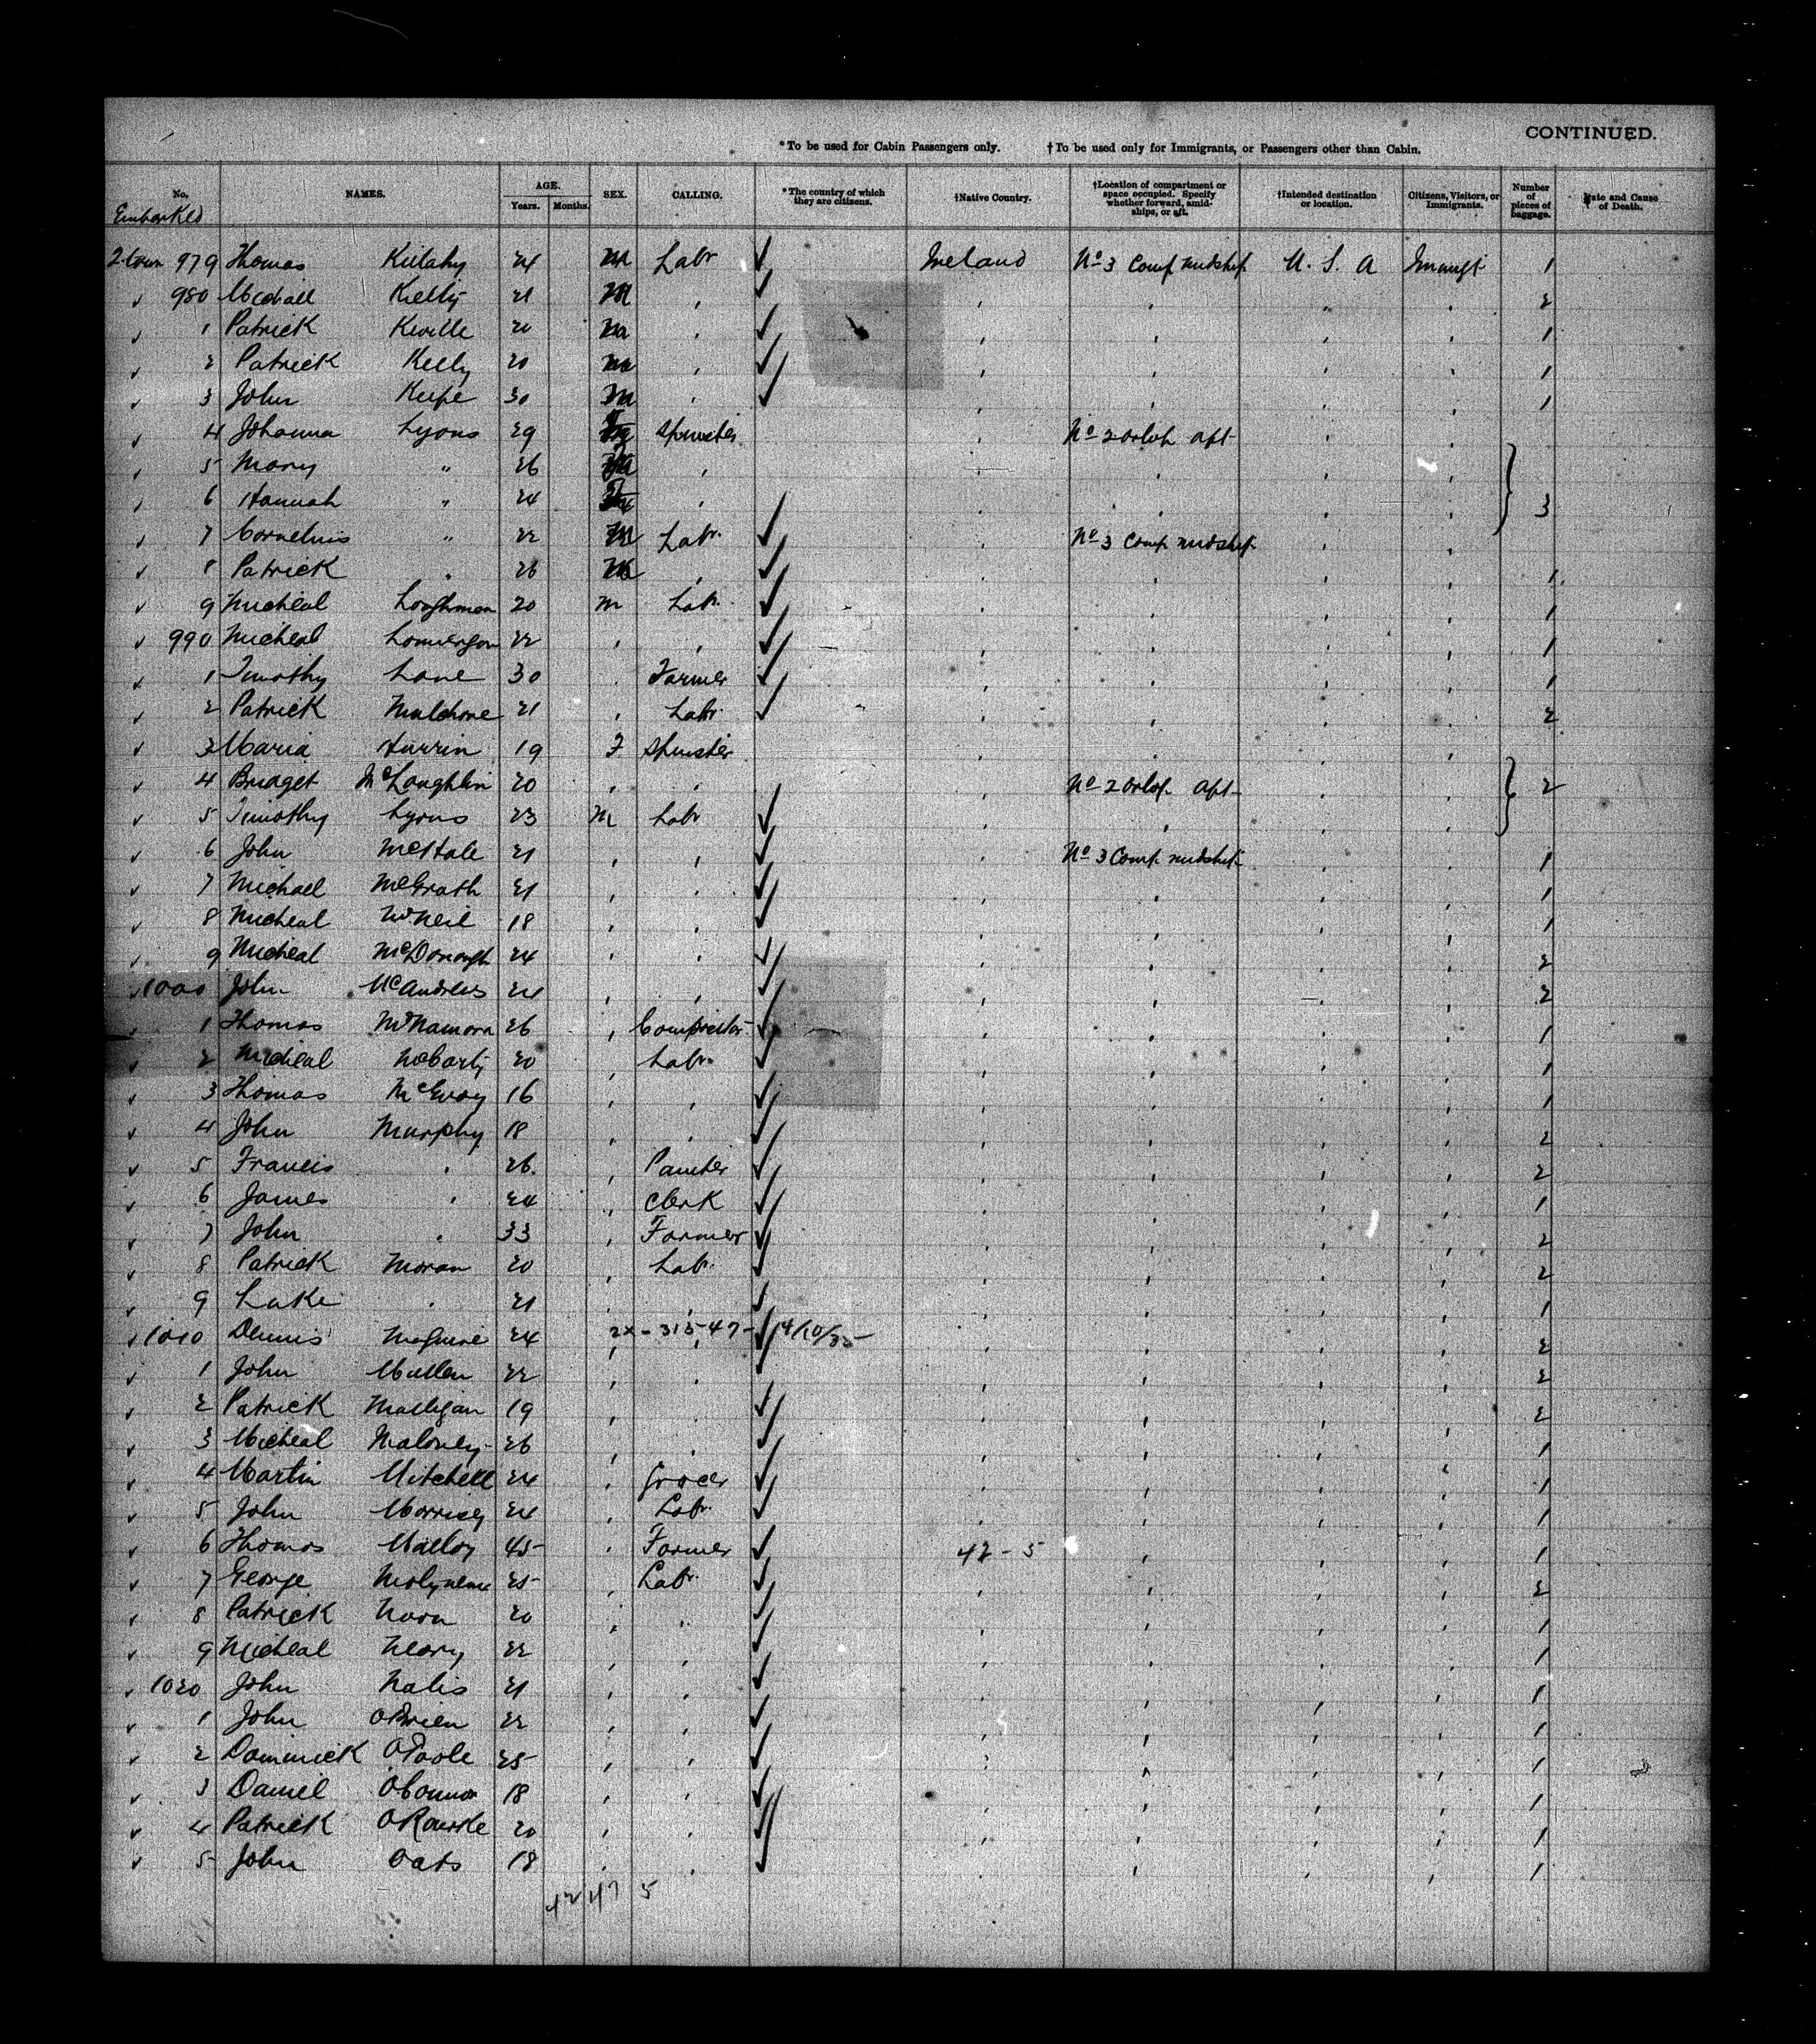 CONTINUED.
*To be used for Cabin Passengers only. †To be used only for Immigrants, or Passengers other than Cabin.
No. NAMES. AGE. Years. Months. SEX. CALLING. *The country of which they are citizens. †Native Country. †Location of compartment or space occupied. Specify whether forward, amidships, or aft. †Intended destination or location. Citizens, Visitors, or Immigrants. Number of pieces of baggage. Date and Cause of Death.
Embarked
979 Thomas 24 M Labr ✓ Ireland No 3 Comp midship U. S. A 1
980 Micheal Kelly 21 M , ✓ , , , , 2
1 Patrick Keville 20 M , ✓ , , , , 1
2 Patrick Kelly 20 M , ✓ , , , , 1
3 John Keefe 30 M , ✓ , , , , 1
4 Johanna Lyons 29 F Spinster , No 2 orlop aft , ,
5 Mary " 26 , , , , ,
6 Hannah " 24 F , , , , , 3
7 Cornelius " 22 M Labr. ✓ , No 3 Comp midship , ,
8 Patrick " 26 M , ✓ , , , , 1
9 Micheal Loughman 20 M Labr. ✓ , , , , 1
990 Micheal 22 , , ✓ , , , , 1
1 Timothy Lane 30 , Farmer ✓ , , , , 1
2 Patrick 21 , Labr. ✓ , , , , 2
3 Maria 19 F Spinster , , ,
4 Bridget McLoughlin 20 , , , No 2 orlop aft , , 2
5 Timothy Lyons 23 M Labr ✓ , , , ,
6 John McHale 21 , , ✓ , No 3 Comp midship , , 1
7 Michael McGrath 21 , , ✓ , , , , 1
8 Micheal McNeil 18 , , ✓ , , , , 1
9 Micheal McDonough 24 , , ✓ , , , , 2
1000 John McAndrews 24 , , ✓ , , , , 2
1 Thomas McNamara 26 , Compositor ✓ , , , , 1
2 Micheal McCarty 20 , Labr. ✓ , , , , 1
3 Thomas McEvoy 16 , , ✓ , , , , 1
4 John Murphy 18 , , ✓ , , , , 2
5 Francis , 26 , Painter ✓ , , , , 2
6 James , 24 , Clerk ✓ , , , , 1
7 John , 33 , Farmer ✓ , , , , 2
8 Patrick Moran 20 , Labr. ✓ , , , , 2
9 Luke , 21 , , ✓ , , , , 1
1010 Dennis Maguire 24 , 2x-315-47- ✓ , , , , 2
1 John Mullen 22 , , ✓ , , , , 2
2 Patrick Mulligan 19 , , ✓ , , , , 2
3 Micheal Maloney 26 , , ✓ , , , , 1
4 Martin Mitchell 24 , Grocer ✓ , , , , 1
5 John Morrisey 24 , Labr. ✓ , , , , 1
6 Thomas Malloy 45 , Farmer ✓ 42-5 , , , 1
7 George Molyneux 25 , Labr. ✓ , , , , 2
8 Patrick 20 , , ✓ , , , , 1
9 Micheal Neary 22 , , ✓ , , , , 1
1020 John Nalis 21 , , ✓ , , , , 1
1 John OBrien 22 , , ✓ , , , , 1
2 Dominick OToole 25 , , ✓ , , , , 1
3 Daniel OConnor 18 , , ✓ , , , , 1
4 Patrick ORourke 20 , , ✓ , , , , 1
5 John Oats 18 , , ✓ , , , , 1
42 47 5